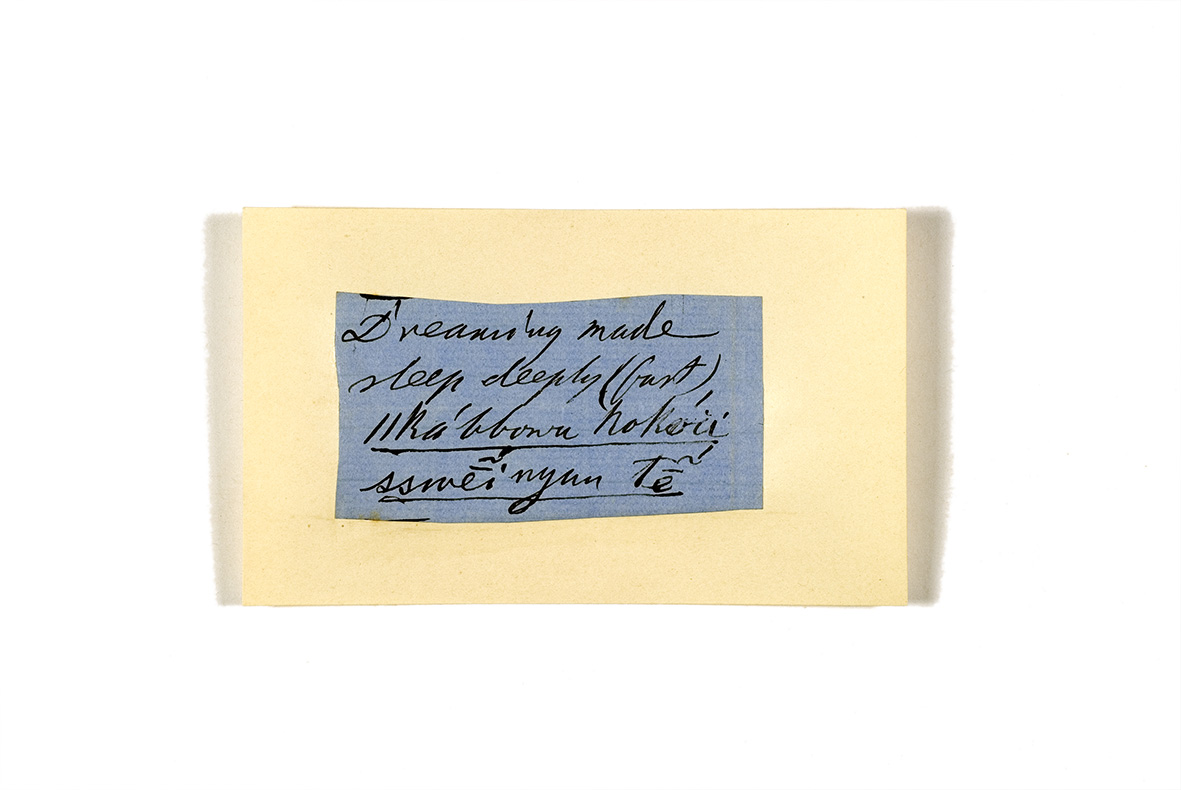 Dreaming made
sleep deeply (fast)
ǁkábbowa hokṓä
sswẽ́í nyan tẽ́